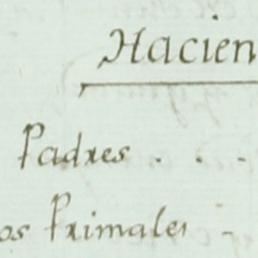 Hacien
Padres . . -
os Primales -